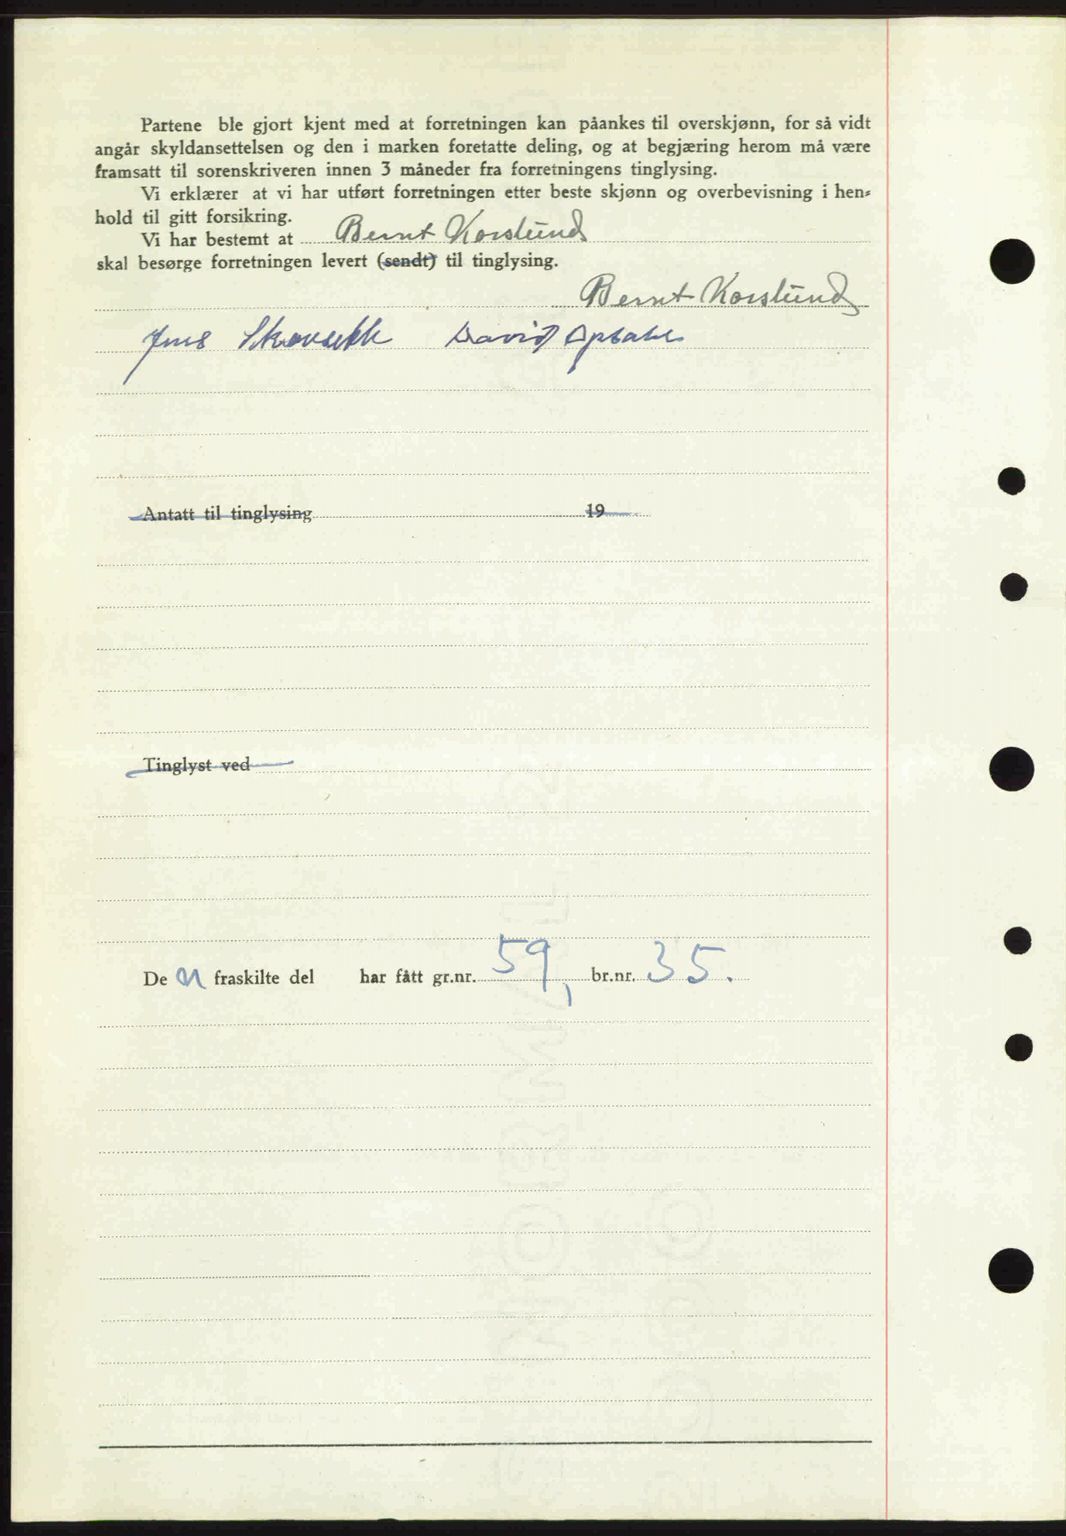 Partene ble gjort kjent med at forretningen kan påankes til overskjønn, for så vidt
angår skyldansettelsen og den i marken foretatte deling, og at begjæring herom må være
framsatt til sorenskriveren innen 3 måneder fra forretningens tinglysing.
Vi erklærer at vi har utført forretningen etter beste skjønn og overbevisning i hen-
hold til gitt forsikring.
Vi har bestemt at Bernt Korslund
skal besørge forretningen levert (sendt) til tinglysing.
Bernt Korslund
Jens David
Antatt til tinglysing 19
Tinglyst ved
De n fraskilte del har fått gr.nr. 59, br.nr. 35.